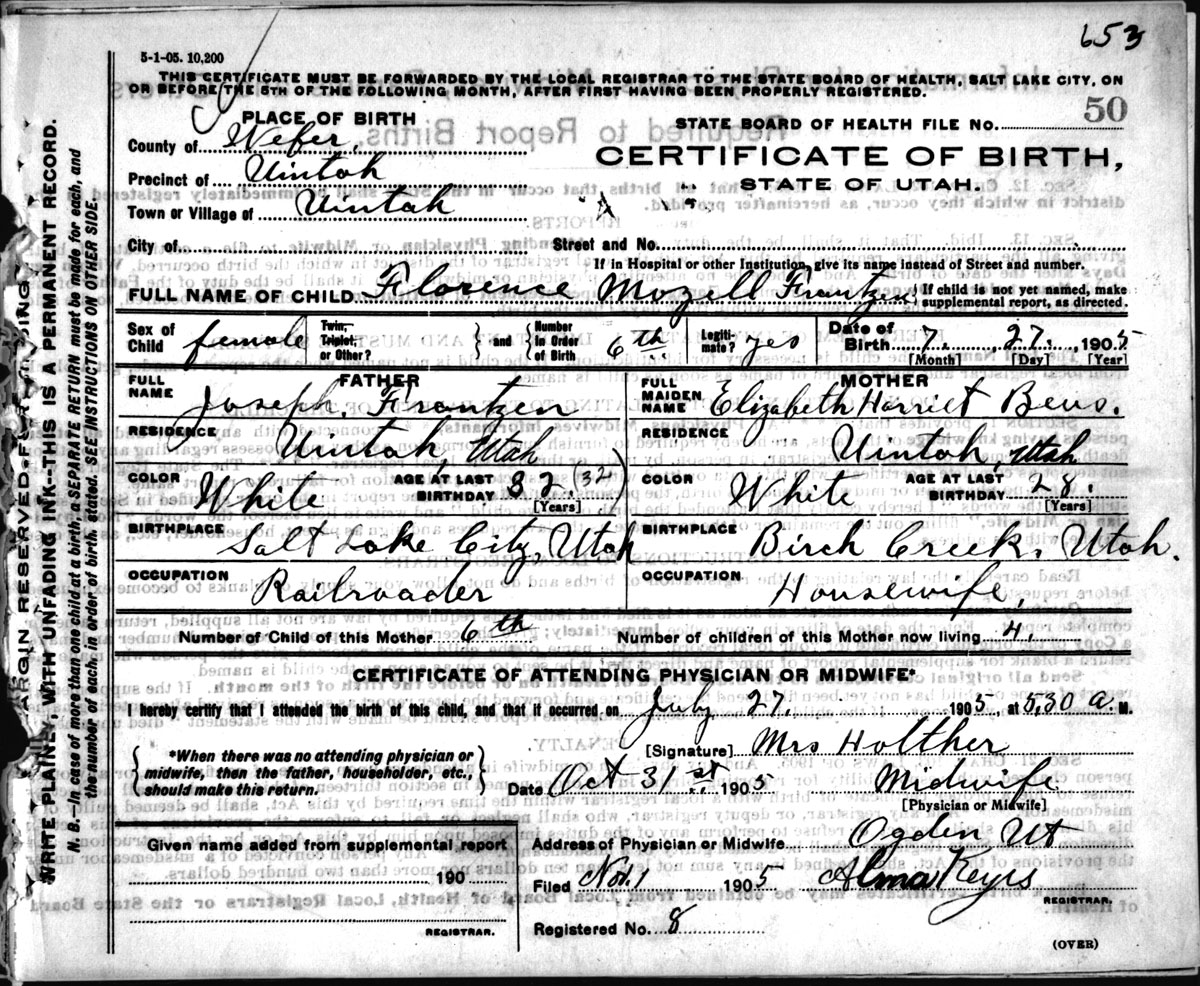 653
5-1-05. 10,200
THIS CERTIFICATE MUST BE FORWARDED BY THE LOCAL REGISTRAR TO THE STATE BOARD OF HEALTH, SALT LAKE CITY, ON
OR BEFORE THE 5TH OF THE FOLLOWING MONTH, AFTER FIRST HAVING BEEN PROPERLY REGISTERED.
PLACE OF BIRTH
STATE BOARD OF HEALTH FILE NO. 50
County of Weber,
CERTIFICATE OF BIRTH,
Precinct of Uintah
STATE OF UTAH.
Town or Village of Uintah
City of
Street and No.
If in Hospital or other Institution, give its name instead of Street and number.
FULL NAME OF CHILD. Florence Mozell Frantzen { If child is not yet named, make supplemental report, as directed.
Sex of Child female Twin, Triplet, or Other? } and { Number in Order of Birth 6th Legitimate? yes Date of Birth 7. 27. 1905
[Month] [Day] [Year]
FATHER
MOTHER
FULL NAME Joseph. Frantzen
FULL MAIDEN NAME Elizabeth Harriet Beus.
RESIDENCE Uintah, Utah
RESIDENCE Uintah, Utah
COLOR White AGE AT LAST BIRTHDAY 32. (32) [Years]
COLOR White AGE AT LAST BIRTHDAY 28. [Years]
BIRTHPLACE Salt Lake City, Utah
BIRTHPLACE Birch Creek. Utah.
OCCUPATION Railroader
OCCUPATION Housewife,
Number of Child of this Mother 6th
Number of children of this Mother now living 4.
CERTIFICATE OF ATTENDING PHYSICIAN OR MIDWIFE*
I hereby certify that I attended the birth of this child, and that it occurred on July 27. 1905, at 5,30 a. M.
{ *When there was no attending physician or midwife, then the father, householder, etc., should make this return. }
[Signature] Mrs Holther
Date Oct 31st 1905 Midwife
[Physician or Midwife]
Given name added from supplemental report
190
REGISTRAR.
Address of Physician or Midwife Ogden Ut
Filed Nov. 1 1905 Alma Keyes
REGISTRAR.
Registered No. 8
(OVER)
MARGIN RESERVED FOR BINDING
WRITE PLAINLY, WITH UNFADING INK--THIS IS A PERMANENT RECORD.
N. B.—In case of more than one child at a birth, a SEPARATE RETURN must be made for each, and
the number of each, in order of birth stated. SEE INSTRUCTIONS ON OTHER SIDE.